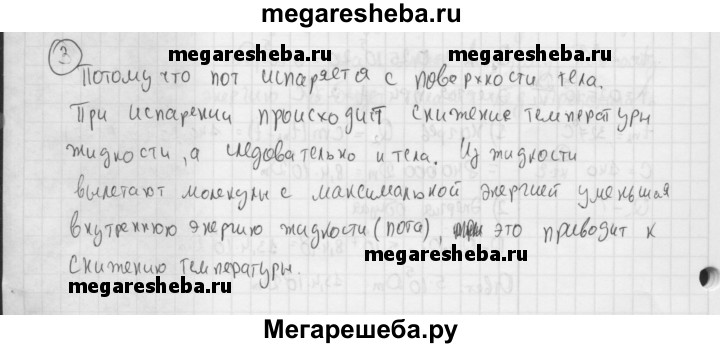 megaresheba.ru
3
Потому что пот испаряется с поверхности тела.
megaresheba.ru megaresheba.ru
При испарении происходит снижение температуры
жидкости, а следовательно и тела. Из жидкости
megaresheba.ru
вылетают молекулы с максимальной энергией уменьшая
внутреннюю энергию жидкости (пота), это приводит к
снижению температуры.
megaresheba.ru
megaresheba.ru
Мегарешеба.ру